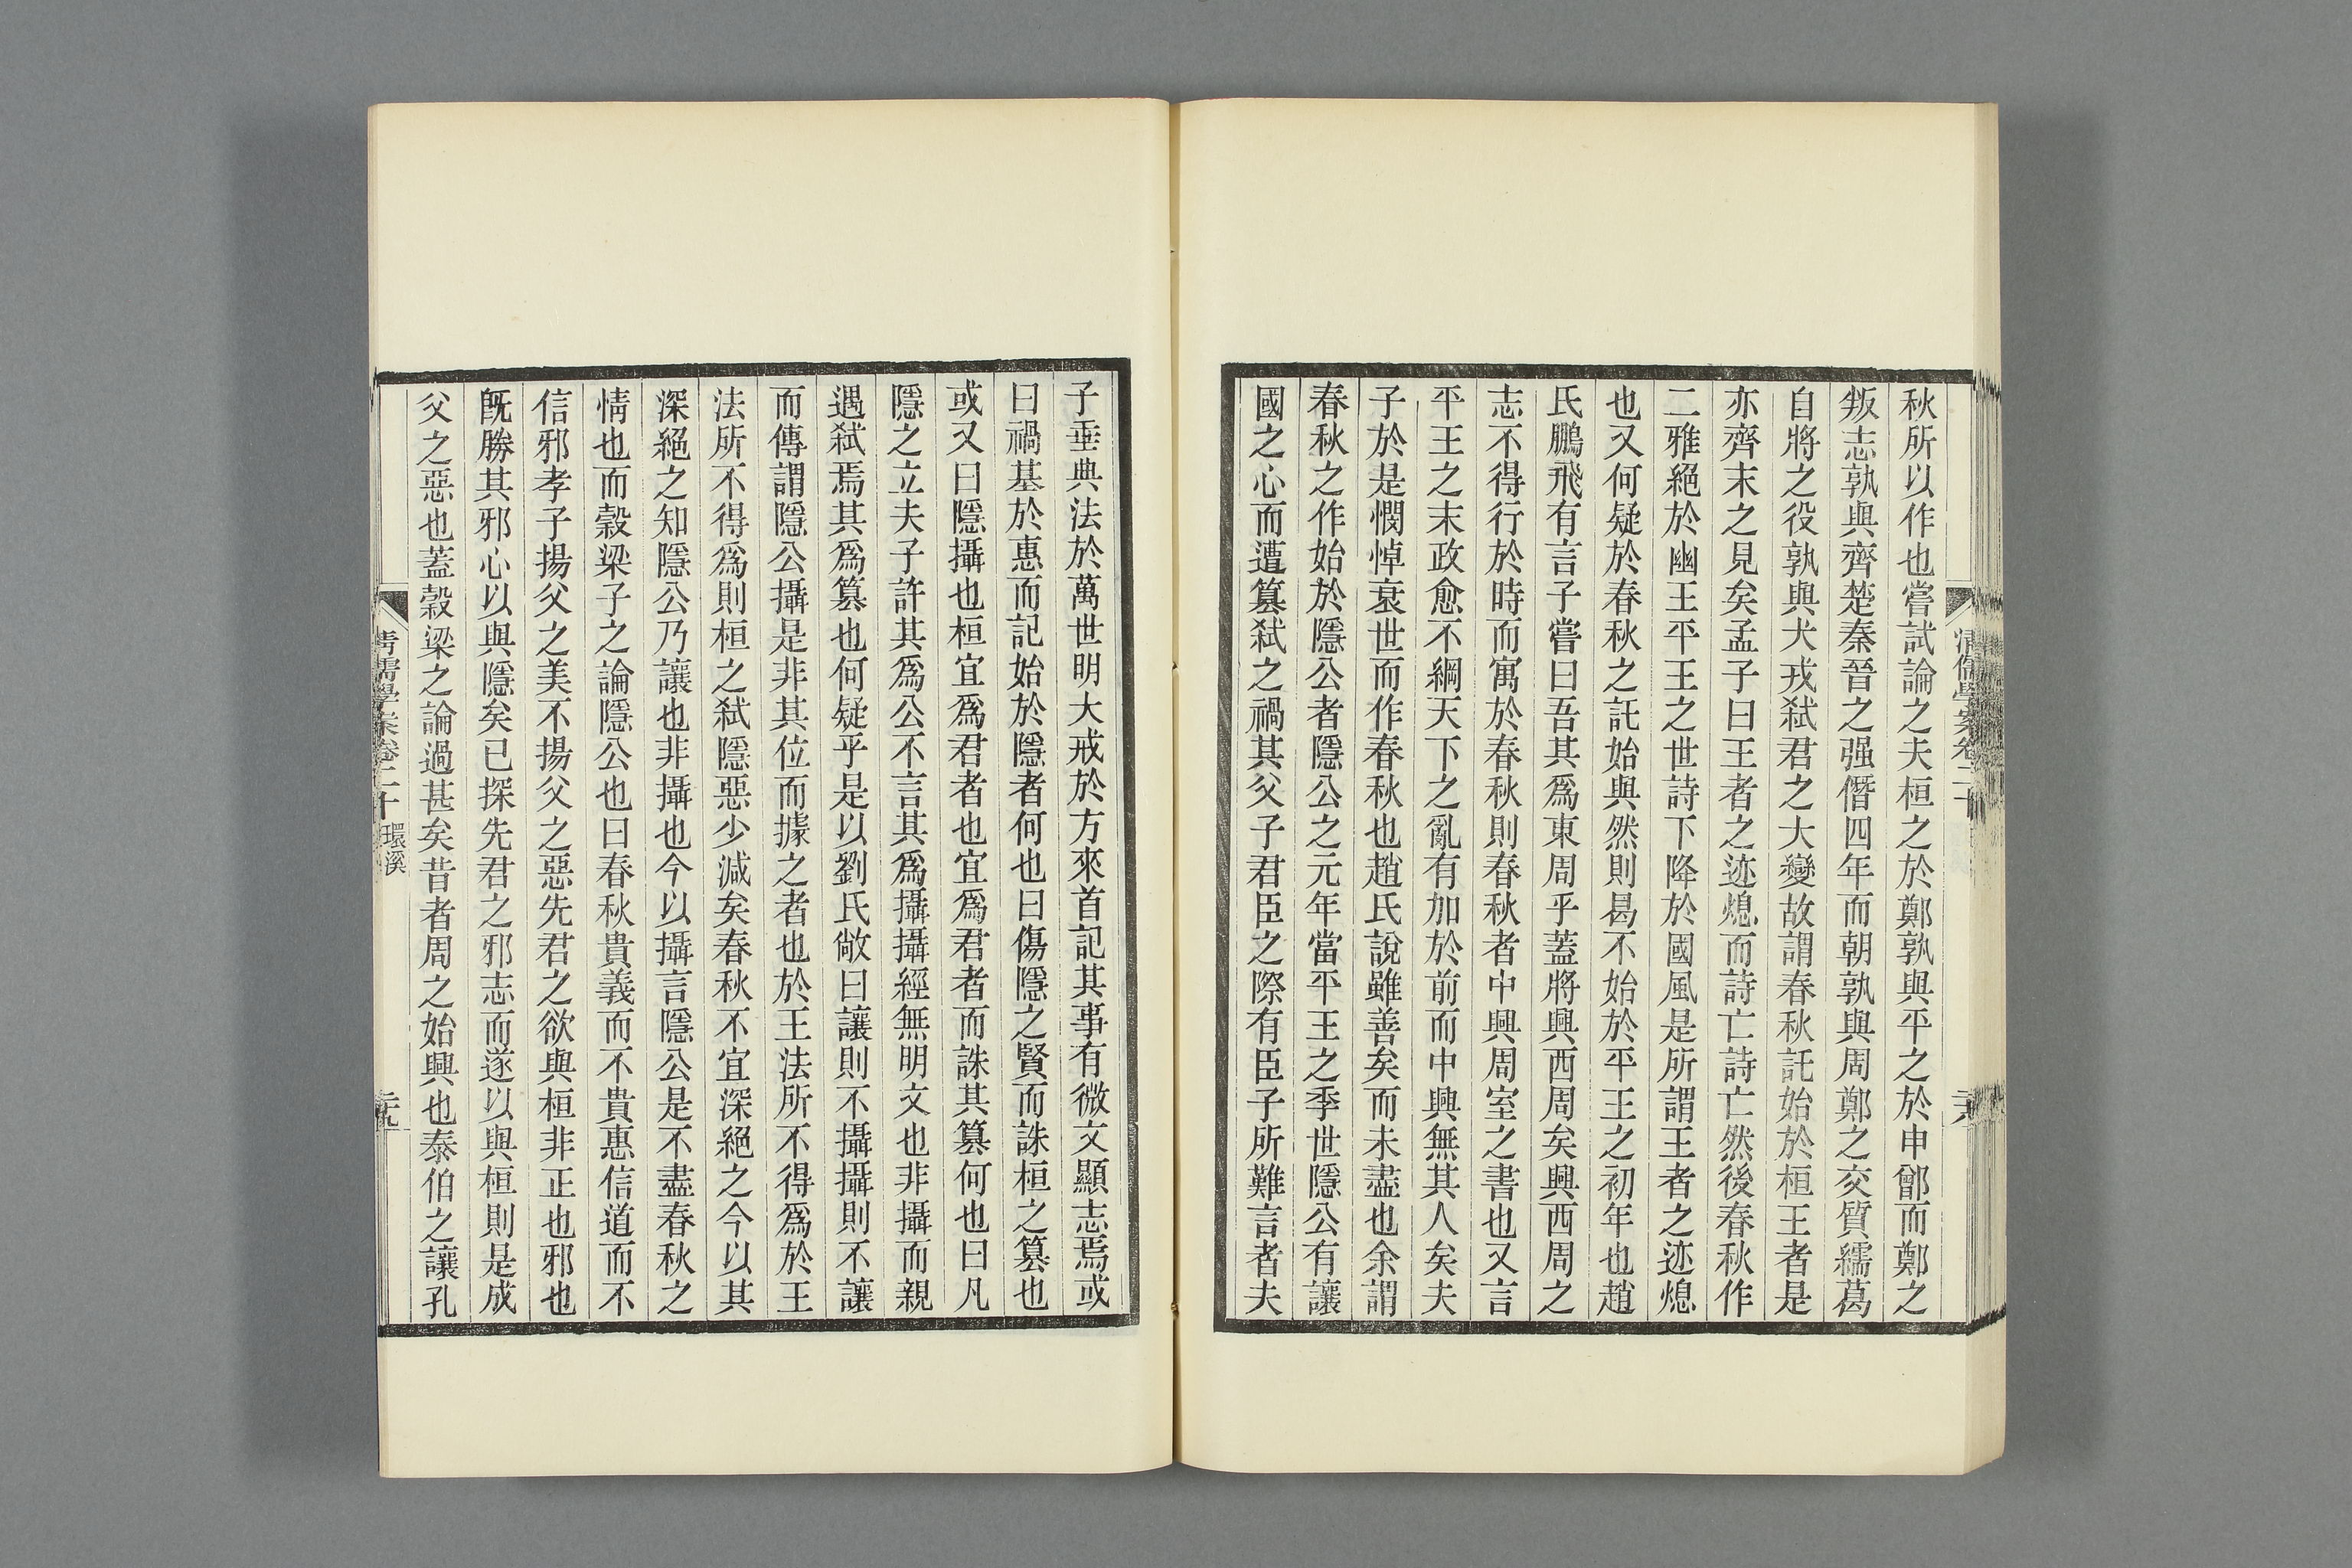 秋所以作也嘗試論之夫桓之於鄭孰與平之於申鄫而鄭之
叛志孰與齊楚秦晉之强僭四年而朝孰與周鄭之交質繻葛
自將之役孰與犬戎弑君之大變故謂春秋託始於桓王者是
亦齊末之見矣孟子曰王者之迹熄而詩亡詩亡然後春秋作
二雅絕於幽王平王之世詩下降於國風是所謂王者之迹熄
也又何疑於春秋之託始與然則曷不始於平王之初年也趙
氏鵬飛有言子嘗曰吾其爲東周乎蓋將興西周矣興西周之
志不得行於時而寓於春秋則春秋者中興周室之書也又言
平王之末政愈不綱天下之亂有加於前而中興無其人矣夫
子於是憫悼衰世而作春秋也趙氏說雖善矣而未盡也余謂
春秋之作始於隱公者隱公之元年當平王之季世隱公有讓
國之心而遭篡弑之禍其父子君臣之際有臣子所難言者夫
清儒學案卷二十
子垂典法於萬世明大戒於方來首記其事有微文顯志焉或
曰禍基於惠而記始於隱者何也曰傷隱之賢而誅桓之篡也
或又曰隱攝也桓宜爲君者也宜爲君者而誅其篡何也曰凡
隱之立夫子許其爲公不言其爲攝攝經無明文也非攝而親
遇弑焉其爲篡也何疑乎是以劉氏敞曰讓則不攝攝則不讓
而傳謂隱公攝是非其位而據之者也於王法所不得爲於王
法所不得爲則桓之弑隱惡少減矣春秋不宜深絕之今以其
深絕之知隱公乃讓也非攝也今以攝言隱公是不盡春秋之
情也而穀梁子之論隱公也曰春秋貴義而不貴惠信道而不
信邪孝子揚父之美不揚父之惡先君之欲與桓非正也邪也
旣勝其邪心以與隱矣已探先君之邪志而遂以與桓則是成
父之惡也蓋穀梁之論過甚矣昔者周之始興也泰伯之讓孔
清儒學案卷二十 環溪